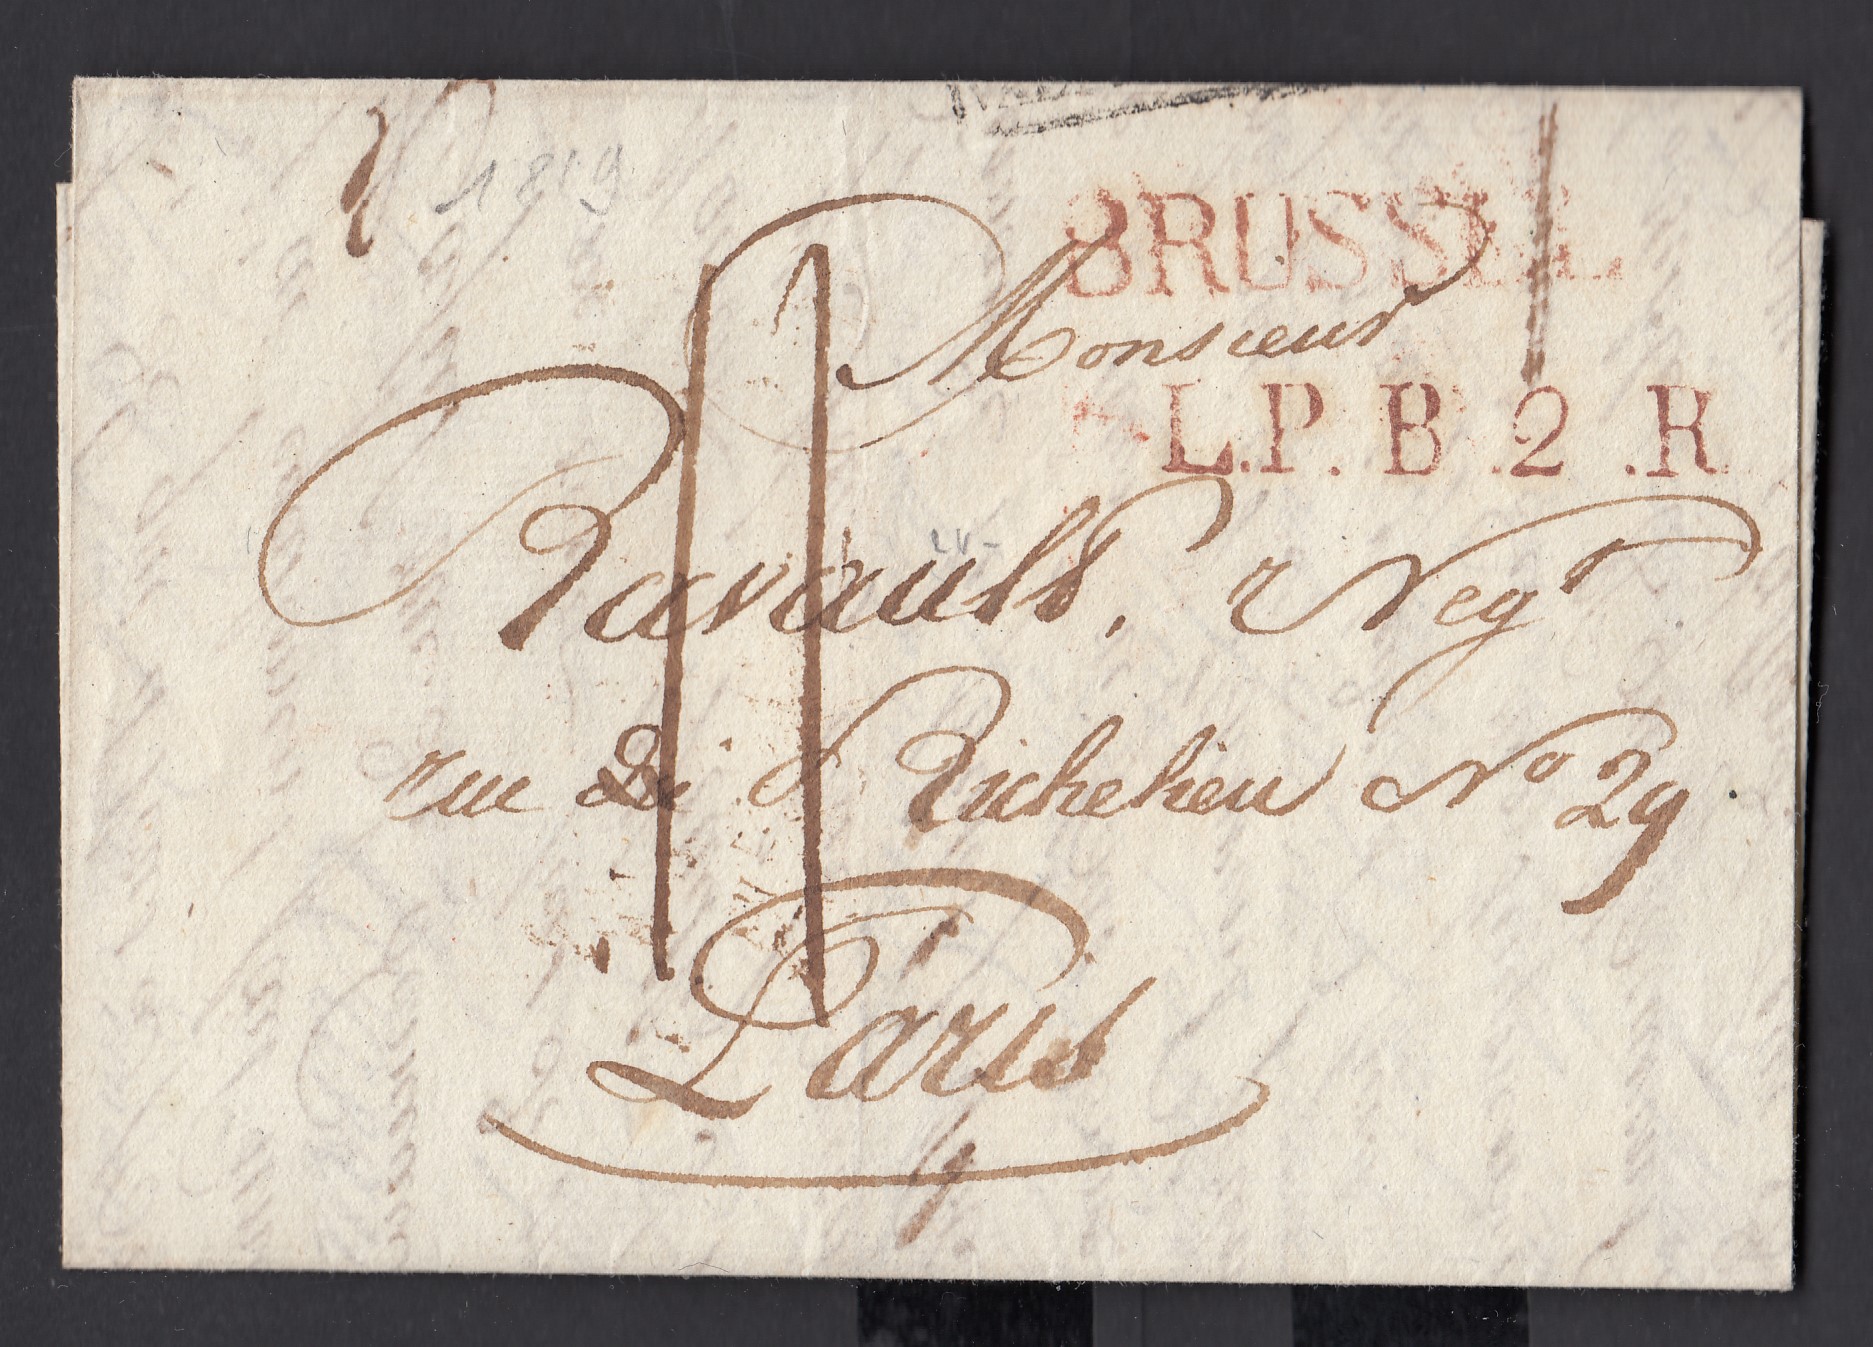 1819
BRUSSEL
Monsieur
L.P.B.2.R
Ravault, Negt
rue De Richelieu No 29.
Paris